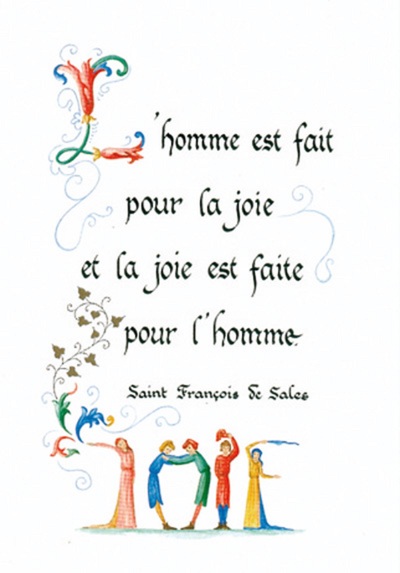 L'homme est fait
pour la joie
et la joie est faite
pour l'homme.
Saint François de Sales